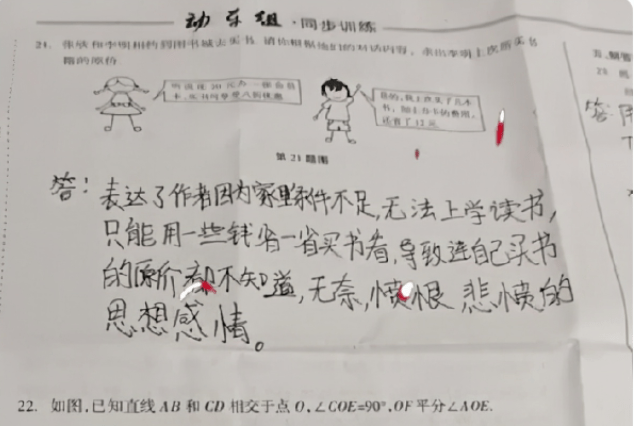 动车组·同步训练
21. 张欣和李明相约到图书城去买书.请你根据他们的对话内容,求出李明上次所买书
籍的原价
听说花20元办一张会员
卡,买书可享受八折优惠
是的,我上次买了几本
书,加上办卡的费用,
还省了12元
第21题图
答:表达了作者因为家里条件不足,无法上学读书,
只能用一些钱省一省买书看,导致连自己买书
的原价都不知道,无奈,愤恨悲愤的
思想感情。
22. 如图,已知直线AB和CD相交于点O,∠COE=90°,OF平分∠AOE.
答: